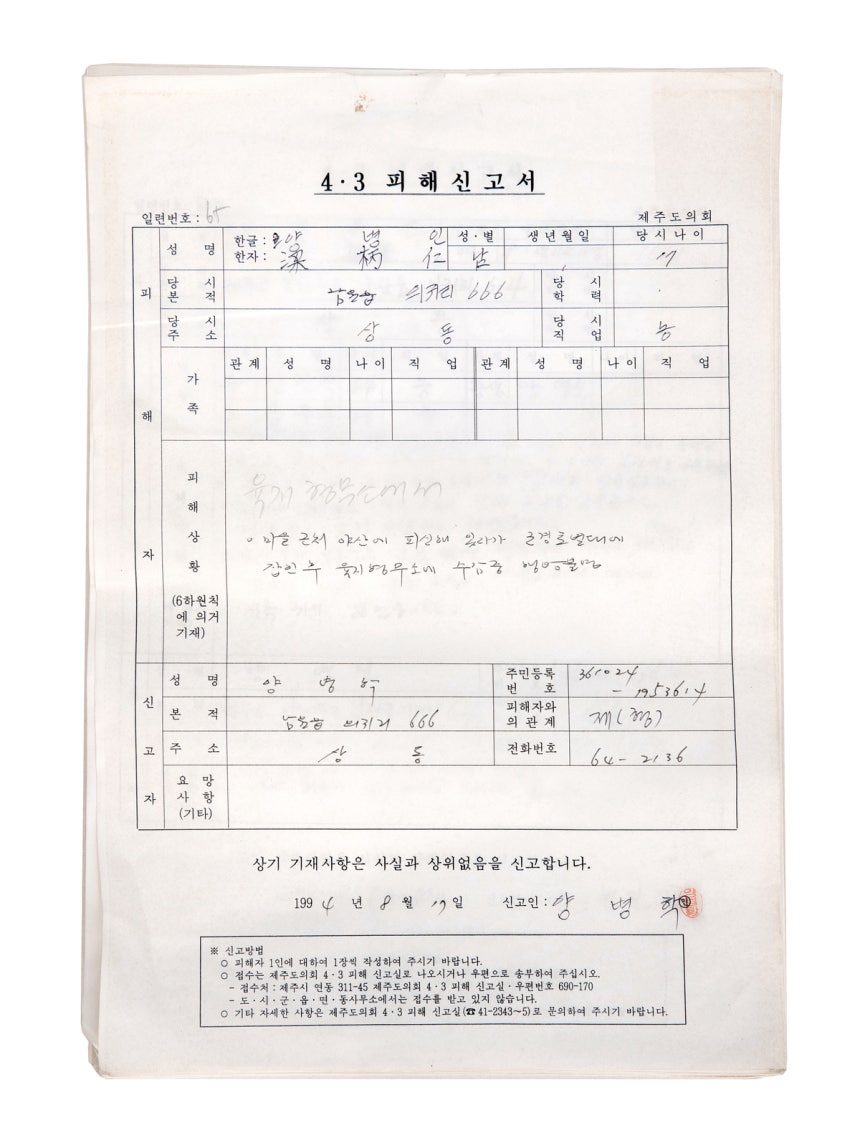 4·3 피해신고서
일련번호: 65
제주도의회
피해자
성 명
한글: 양 병 인
한자: 梁 柄 仁
성·별
남
생년월일
당시나이
17
당시본적
남원읍 의귀리 666
당시학력
당시주소
상 동
당시직업
농
가족
관계 성 명 나이 직 업 관계 성 명 나이 직 업
피해상황
(6하원칙에 의거 기재)
육지 형무소에서
마을 근처 야산에 피신해 있다가 군경토벌대에
잡힌후 육지형무소에 수감중 행방불명
신고자
성 명
양 병
주민등록번호
361024
- 1953614
본 적
남원읍 의귀리 666
피해자와의 관계
제(형)
주 소
상 동
전화번호
64-2136
요망사항
(기타)
상기 기재사항은 사실과 상위없음을 신고합니다.
1994년 8월 17일 신고인: 양 병 학
※ 신고방법
○ 피해자 1인에 대하여 1장씩 작성하여 주시기 바랍니다.
○ 접수는 제주도의회 4·3 피해 신고실로 나오시거나 우편으로 송부하여 주십시오.
- 접수처: 제주시 연동 311-45 제주도의회 4·3 피해 신고실·우편번호 690-170
- 도·시·군·읍·면·동사무소에서는 접수를 받고 있지 않습니다.
○ 기타 자세한 사항은 제주도의회 4·3 피해 신고실(☎41-2343~5)로 문의하여 주시기 바랍니다.